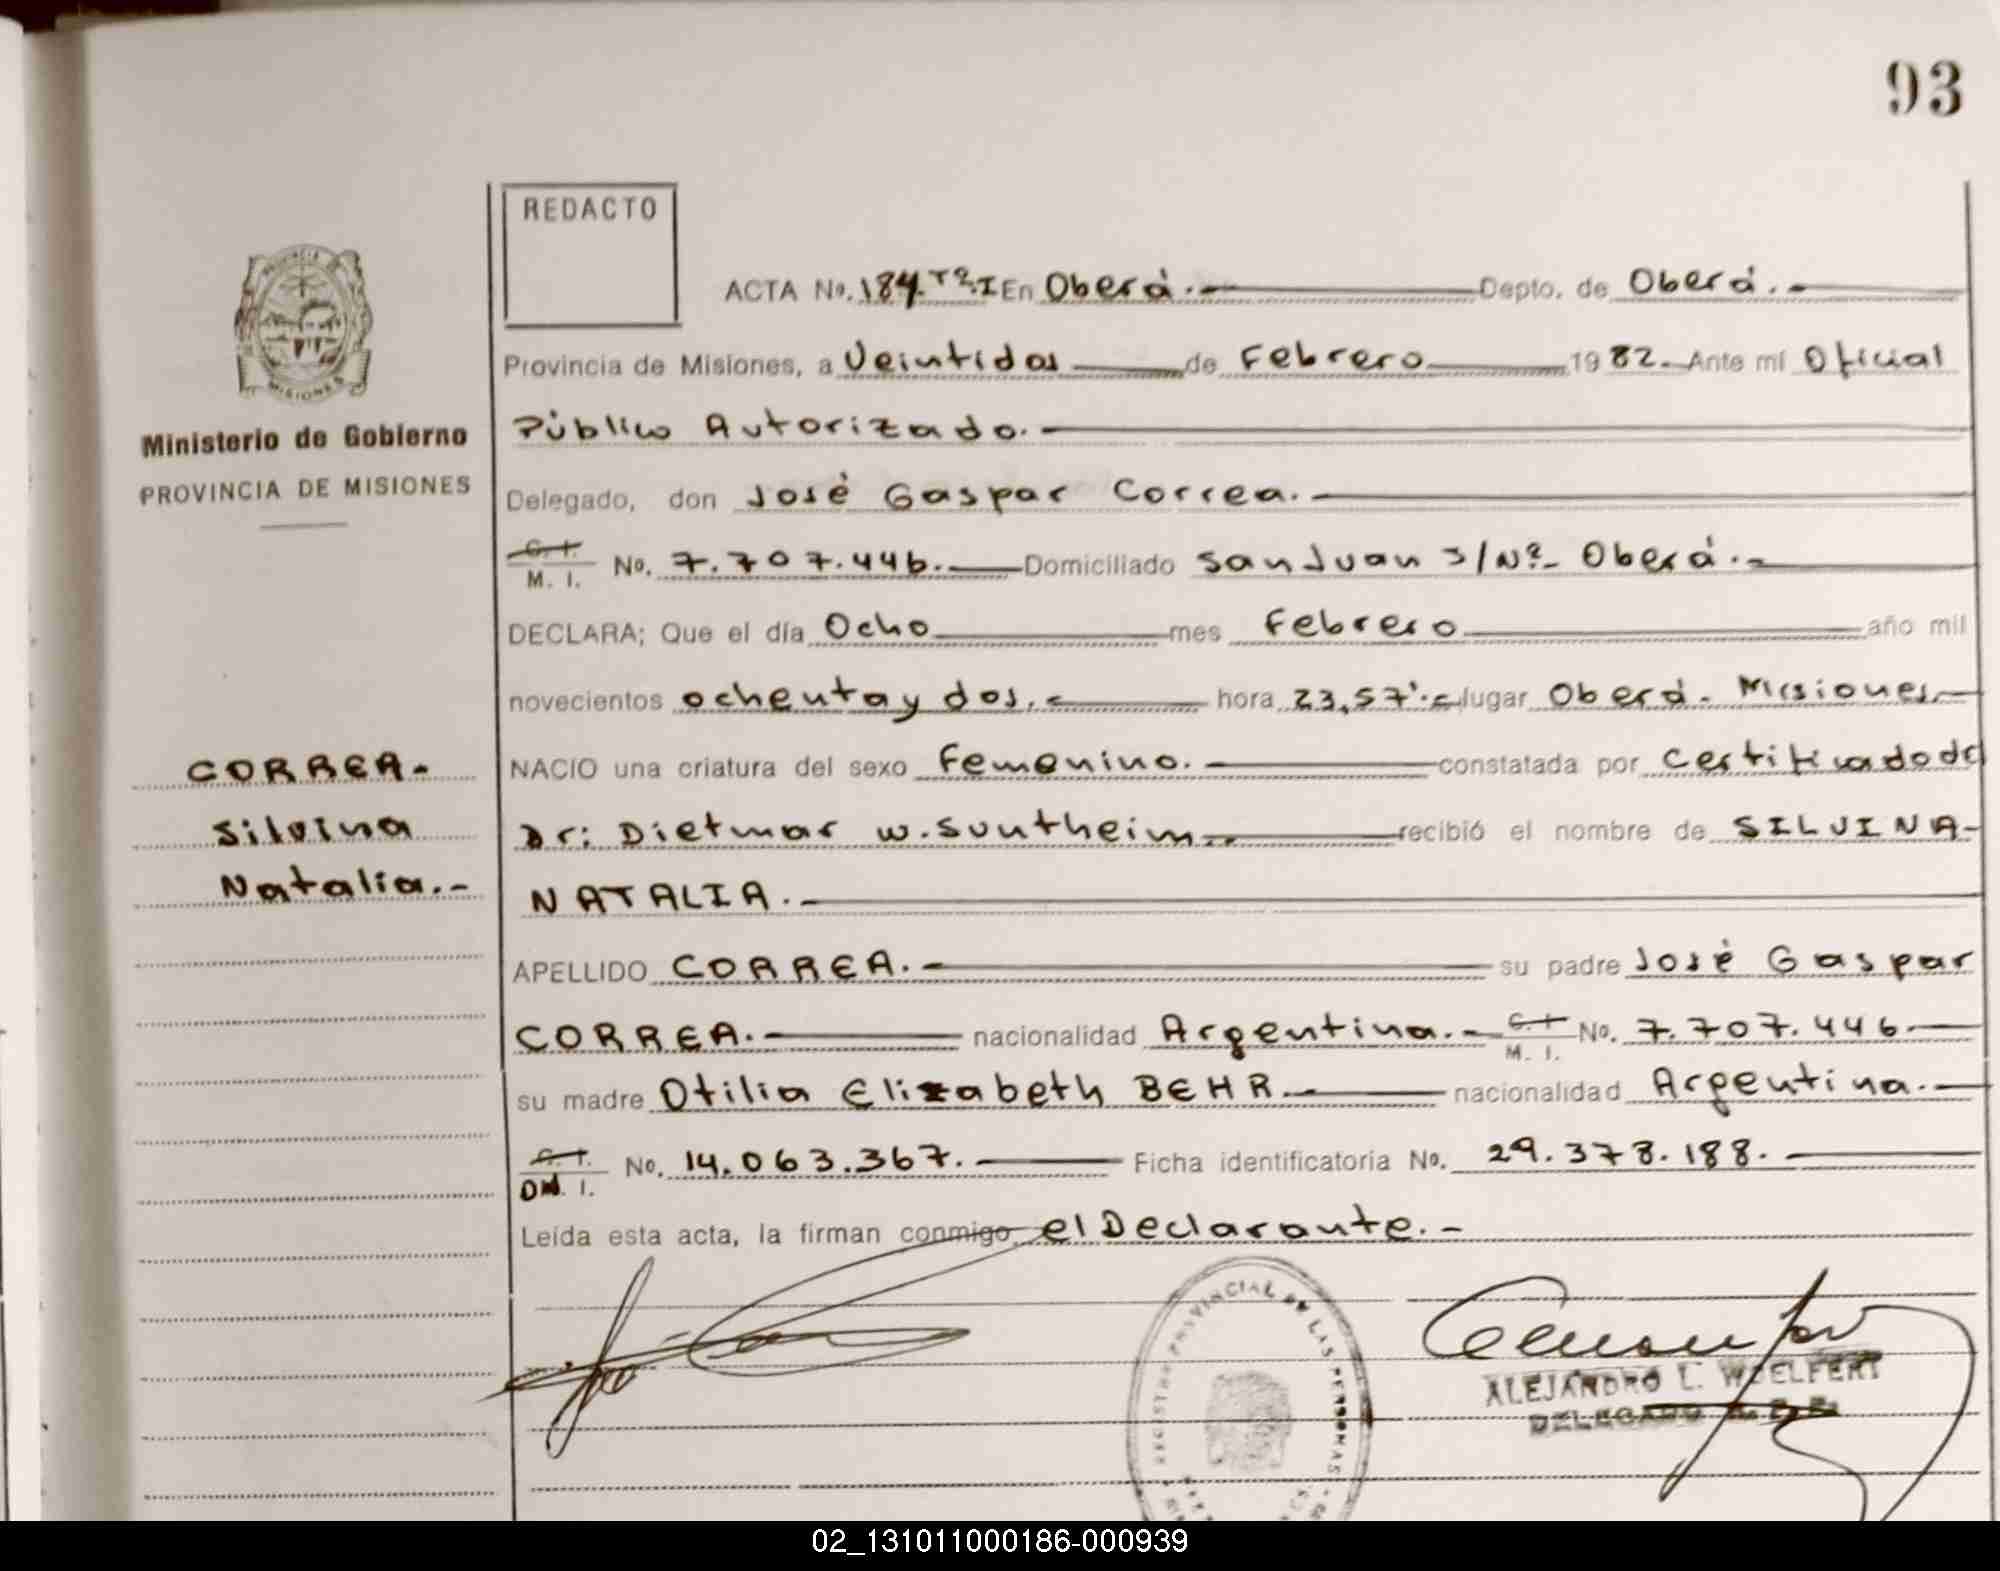 93
REDACTO
ACTA No. 184.Tº.I En Oberá.- Depto. de Oberá.-
Provincia de Misiones, a Veintidos de Febrero 1982.- Ante mí Oficial
Público Autorizado.-
Delegado, don José Gaspar Correa.-
C. I. M. I. No. 7.707.446.- Domiciliado San Juan s/Nº- Oberá.-
DECLARA; Que el día Ocho mes Febrero año mil
novecientos ochenta y dos.- hora 23,57'.- lugar Oberá- Misiones.-
NACIO una criatura del sexo Femenino.- constatada por Certificado de
Dr: Dietmar W. Suntheim.- recibió el nombre de SILVINA-
NATALIA.-
APELLIDO CORREA.- su padre José Gaspar
CORREA.- nacionalidad Argentina.- C. I. M. I. No. 7.707.446.-
su madre Otilia Elizabeth BEHR.- nacionalidad Argentina.-
C. I. DN. I. No. 14.063.367.- Ficha identificatoria No. 29.378.188.-
Leída esta acta, la firman conmigo, el Declarante.-
PROVINCIA
MISIONES
Ministerio de Gobierno
PROVINCIA DE MISIONES
CORREA.-
Silvina
Natalia.-
REGISTRO PROVINCIAL DE LAS PERSONAS
ALEJANDRO L. WOELFERT
DELEGADO
02_131011000186-000939